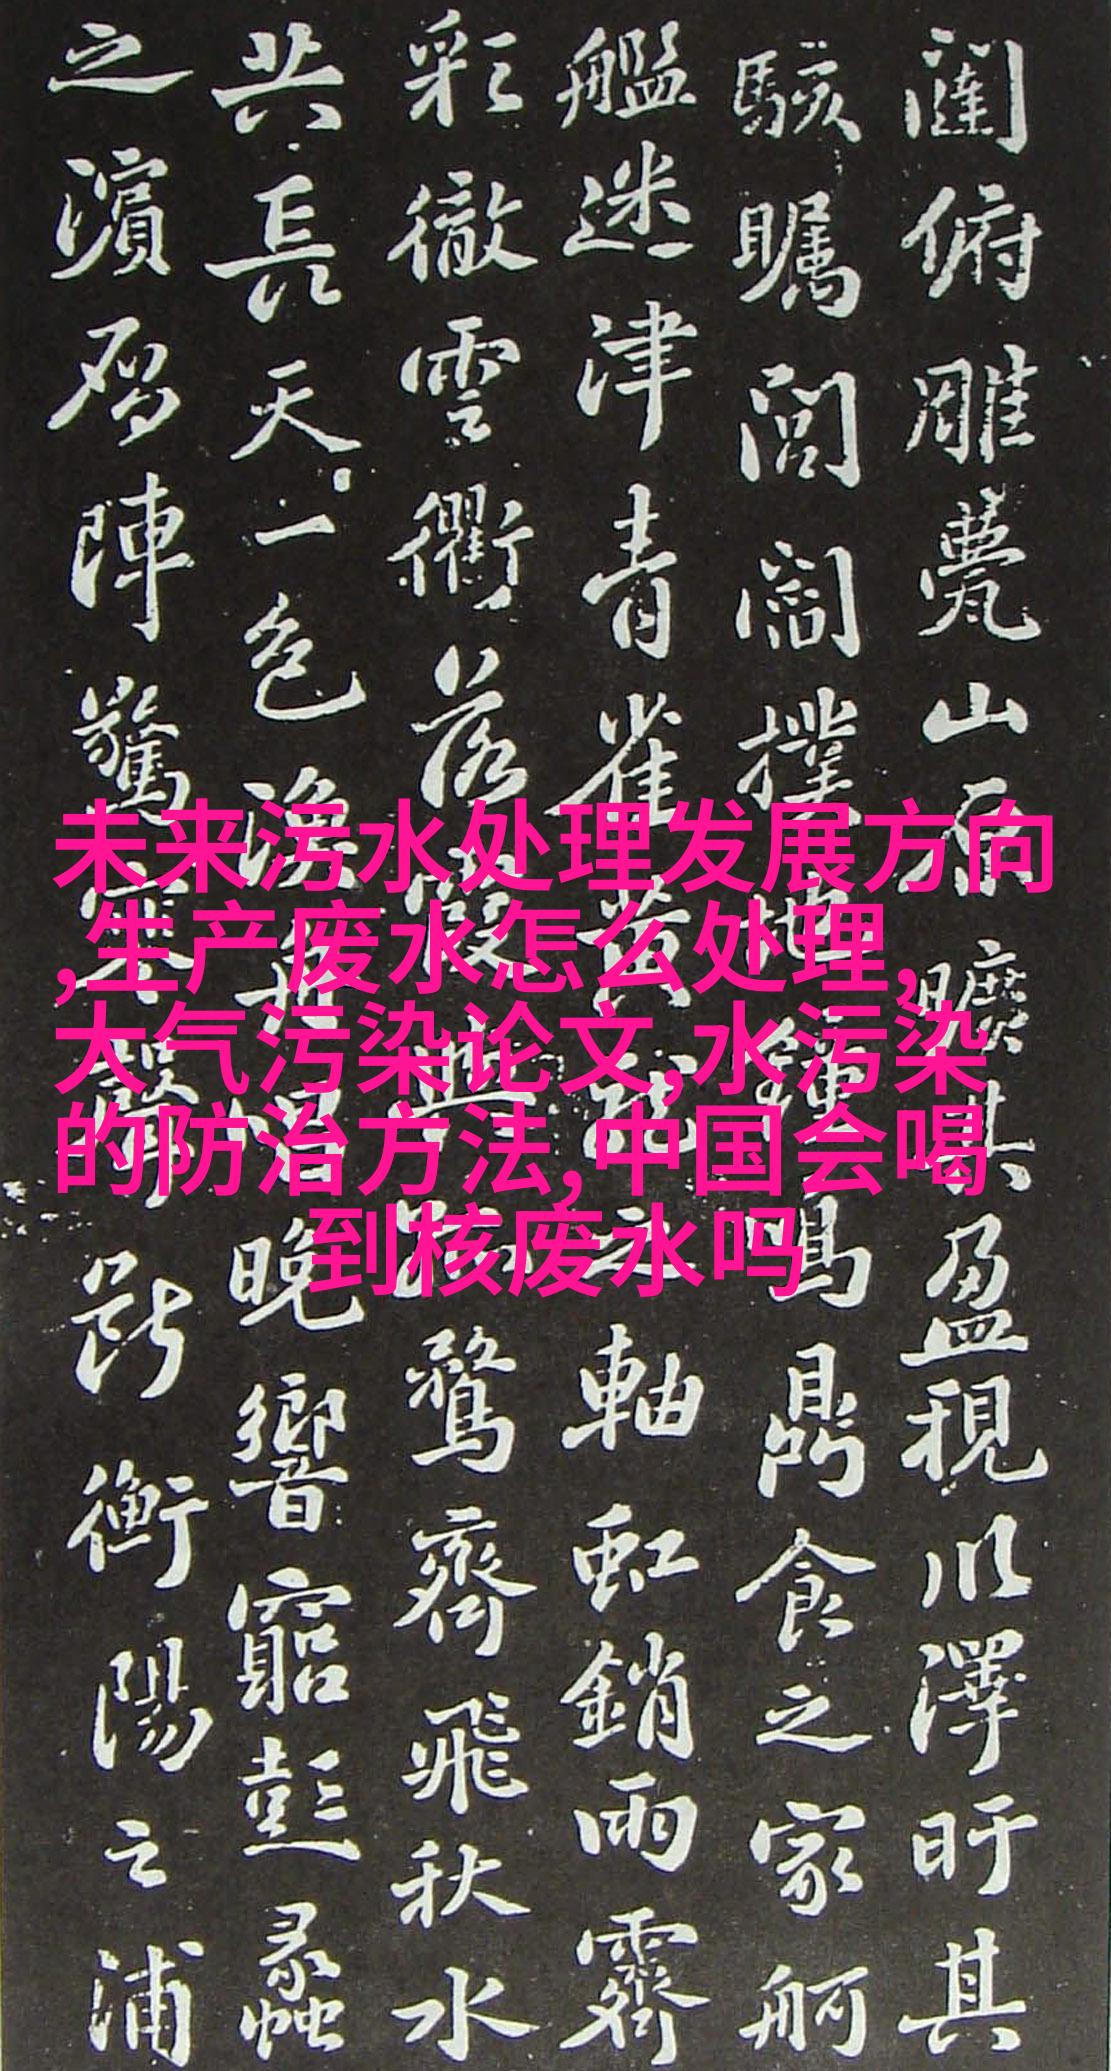 闥俯雕甍山原曠其盈視川澤盱其
駭矚閭閻撲地鍾鳴鼎食之家舸
艦迷津青雀黄龍之軸虹銷雨霽
彩徹雲衢落霞與孤鶩齊飛秋水
共長天一色漁舟唱晚響窮彭蠡
之濱鴈陣驚寒聲斷衡陽之浦
未来污水处理发展方向
,生产废水怎么处理,
大气污染论文,水污染
的防治方法,中国会喝
到核废水吗